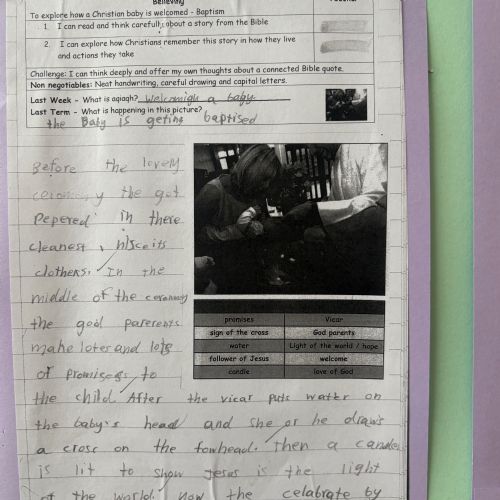 Believing
To explore how a Christian baby is welcomed - Baptism
1. I can read and think carefully about a story from the Bible
2. I can explore how Christians remember this story in how they live
and actions they take
Challenge: I can think deeply and offer my own thoughts about a connected Bible quote.
Non negotiables: Neat handwriting, careful drawing and capital letters.
Last Week - What is aqiqah? Welcomigh a baby.
Last Term - What is happening in this picture?
the Baby is geting baptised
Before the lovely
ceromony the got
Pepered in there
cleanest, nisceits
clothers. In the
middle of the ceromony
the god parerents
make lotes and lots
of promises to
the child. After the vicar puts water on
the baby's head and she or he draws
a cross on the forwhead. Then a candle
is lit to show Jesus is the light
of the world. Now the celabrate by
promises Vicar
sign of the cross God parents
water Light of the world / hope
follower of Jesus welcome
candle love of God